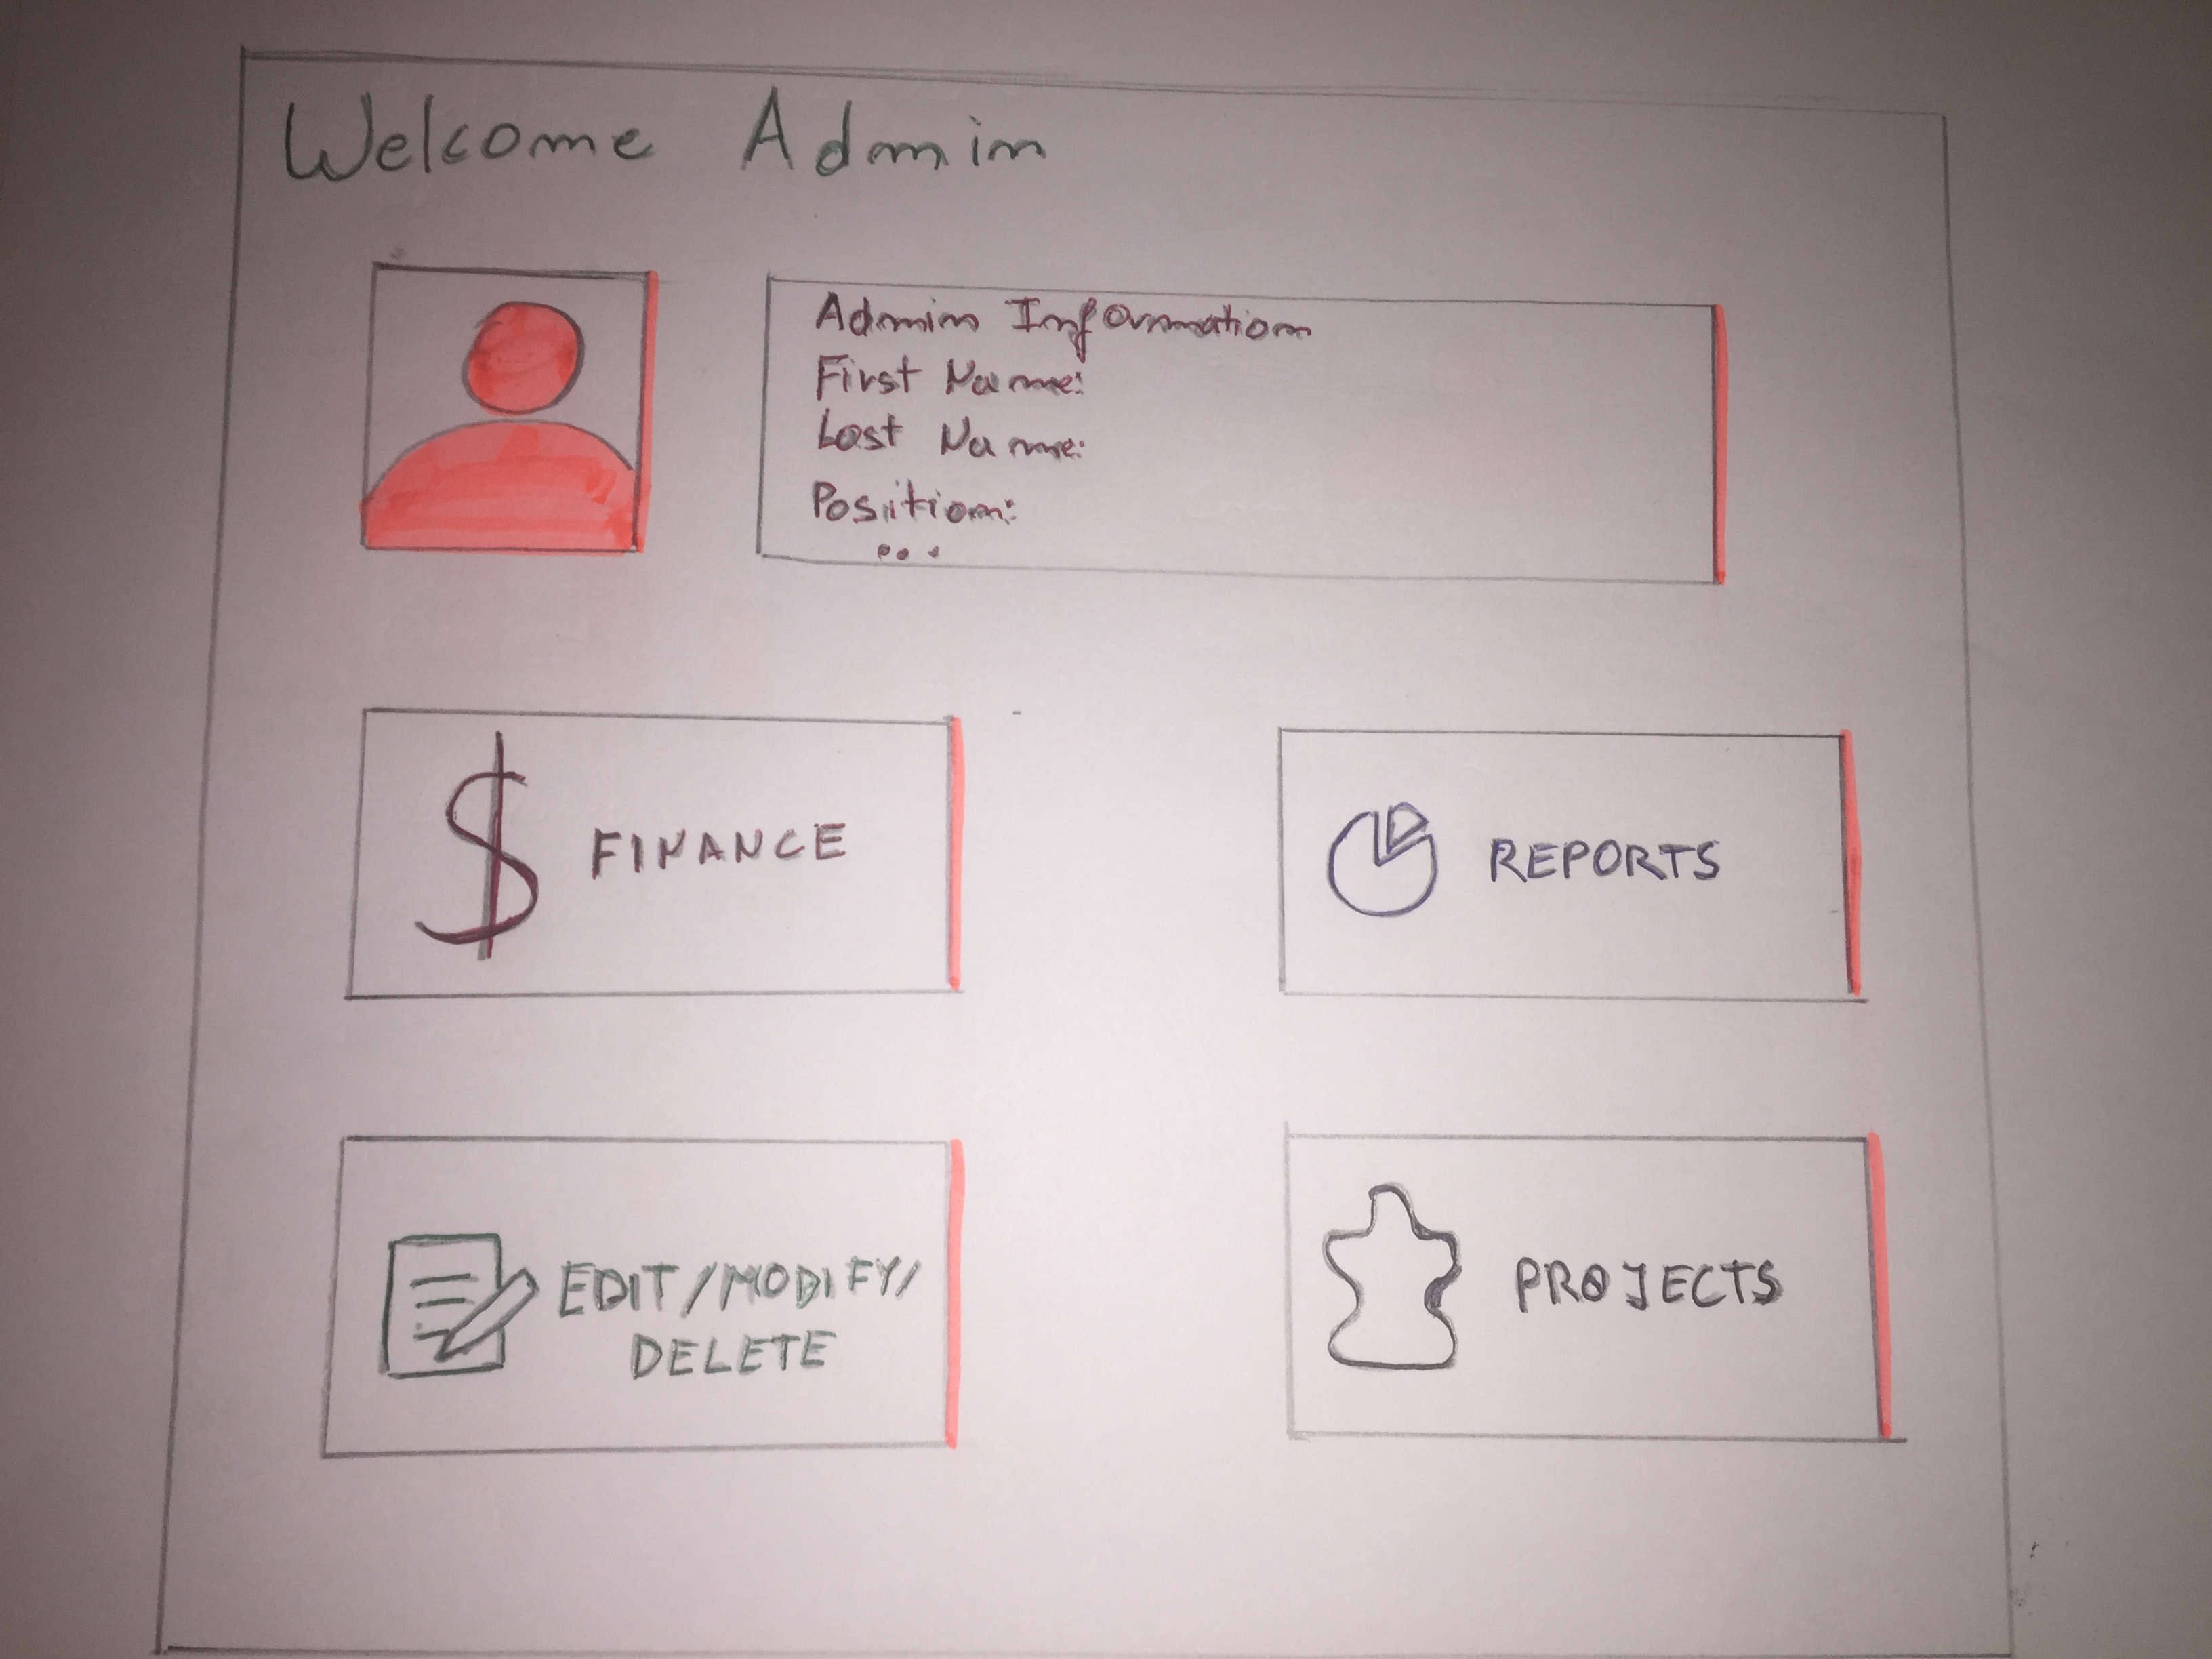 Welcome Admin
Admin Information
First Name:
Last Name:
Position:
...
$ FINANCE
REPORTS
EDIT/MODIFY/
DELETE
PROJECTS